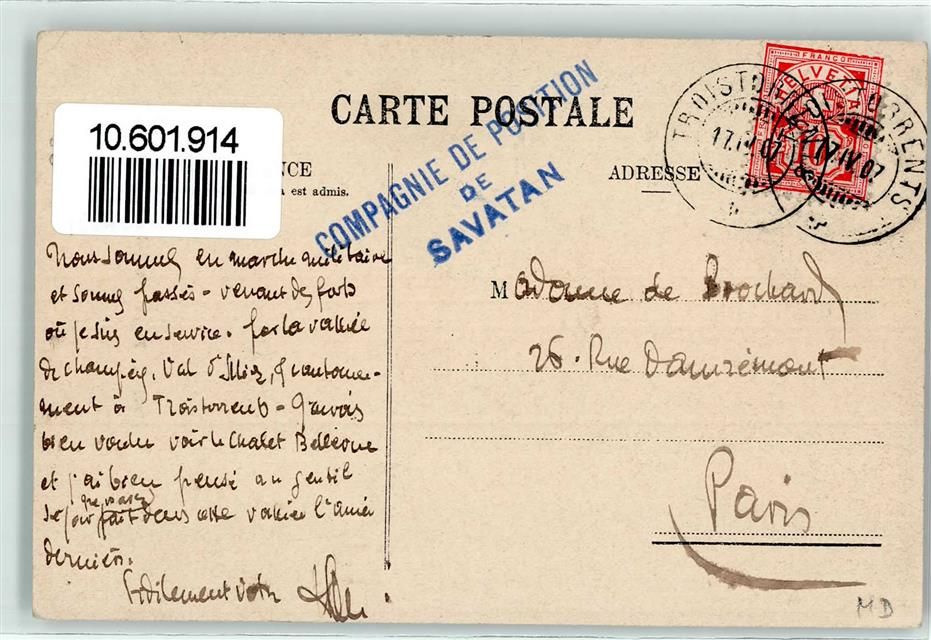 10.601.914
CARTE POSTALE
NCE
est admis.
COMPAGNIE DE POSITION
DE
SAVATAN
ADRESSE
FRANCO
HELVETIA
10
TROISTORRENTS
17.IV.07
TORRENTS
17.IV.07
Nous sommes en marche militaire
et sommes passés - venant des forts
où je suis en service. par la vallée
de Champéry, Val d'Illiez, & cantonne-
ment à Troistorrents -
bien voulu voir le Chalet Bellevue
et j'ai bien pensé au gentil
séjour que vous avez fait dans cette vallée l'année
dernière.
votre
Madame de Brochard
26. Rue Damrémont
Paris
MB